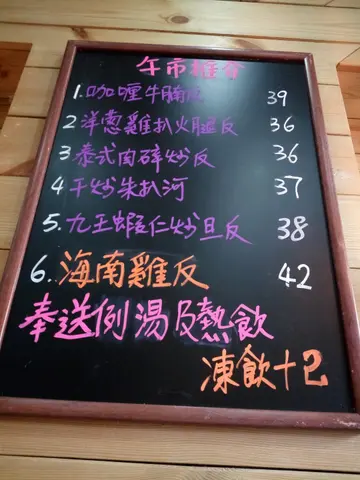 午市推介
1. 咖喱牛腩反 39
2 洋葱雞扒火腿反 36
3 泰式肉碎炒反 36
4 干炒朱扒河 37
5. 九王蝦仁炒旦反 38
6. 海南雞反 42
奉送例湯及熱飲
凍飲十2